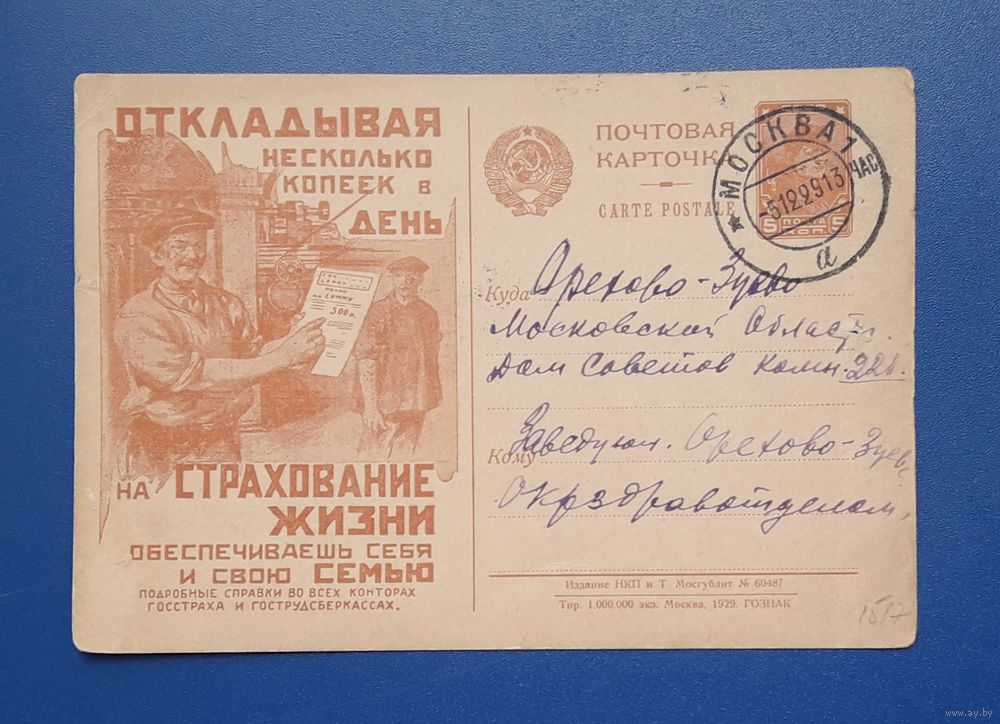 ОТКЛАДЫВАЯ
НЕСКОЛЬКО
КОПЕЕК В
ДЕНЬ
ГОС
СТРАХ
ПОЛИС
на СУММУ
500 р.
НА СТРАХОВАНИЕ
ЖИЗНИ
ОБЕСПЕЧИВАЕШЬ СЕБЯ
И СВОЮ СЕМЬЮ
ПОДРОБНЫЕ СПРАВКИ ВО ВСЕХ КОНТОРАХ
ГОССТРАХА И ГОСТРУДСБЕРКАССАХ.
ПОЧТОВАЯ
КАРТОЧКА
CARTE POSTALE
МОСКВА 1
-5122913
ЧАС
а
5 ПОЧТА 5
КОП.
Куда Орехово-Зуево
Московской Области
дом Советов комн. 226.
Кому Заведующ. Орехово-Зуев
Окрздравотделом,
Издание НКП и Т Мосгублит № 60487
Тир. 1.000.000 экз. Москва, 1929. ГОЗНАК
www.ay.by